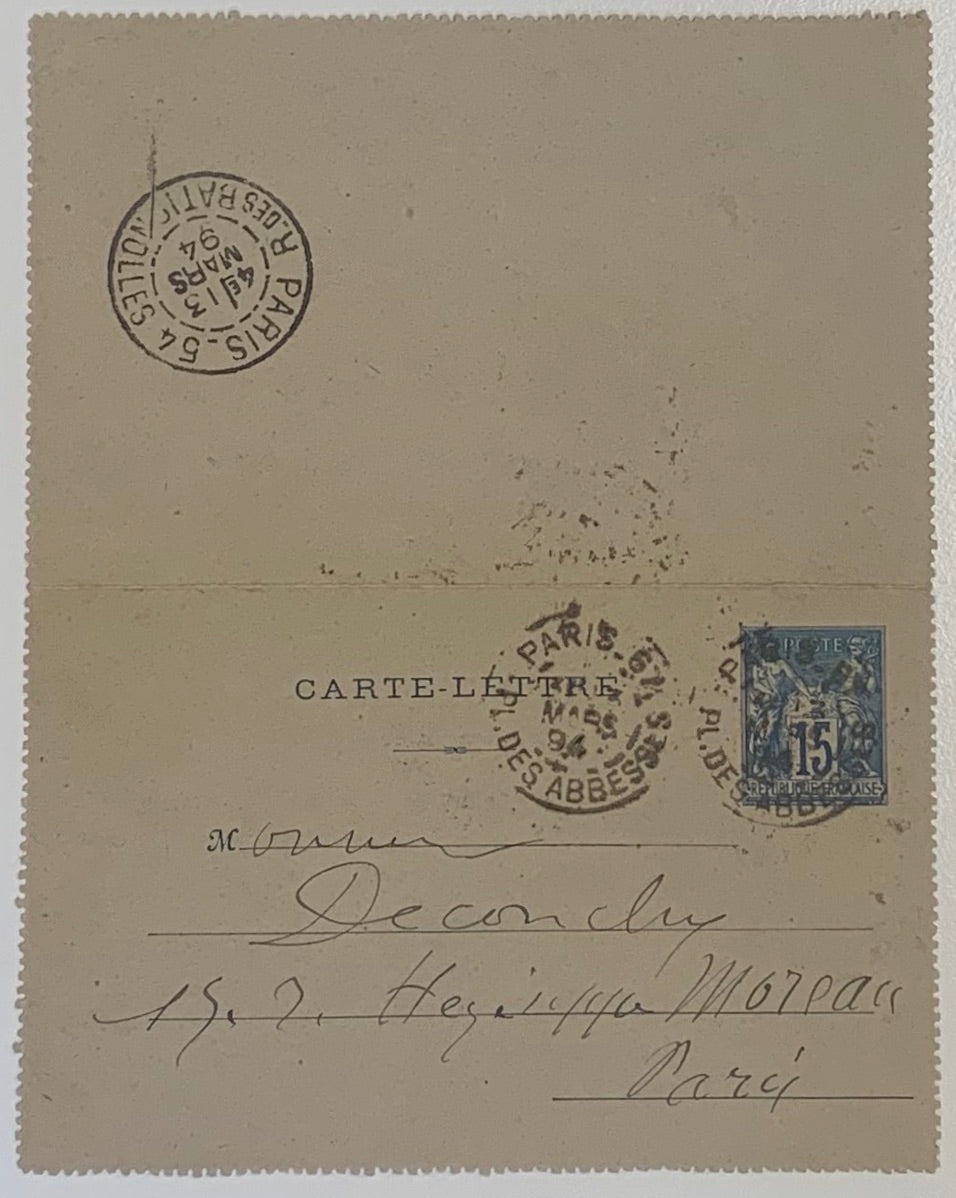 PARIS. 54
R. DES BATIGNOLLES
4E
13
MARS
94
CARTE-LETTRE
PARIS
PL. DES ABBESSES
MARS
94
POSTES
15
REPUBLIQUE FRANÇAISE
PL. DES ABBESSES
Monsieur
Deconchy
15. r. Hegésippe Moreau
Paris